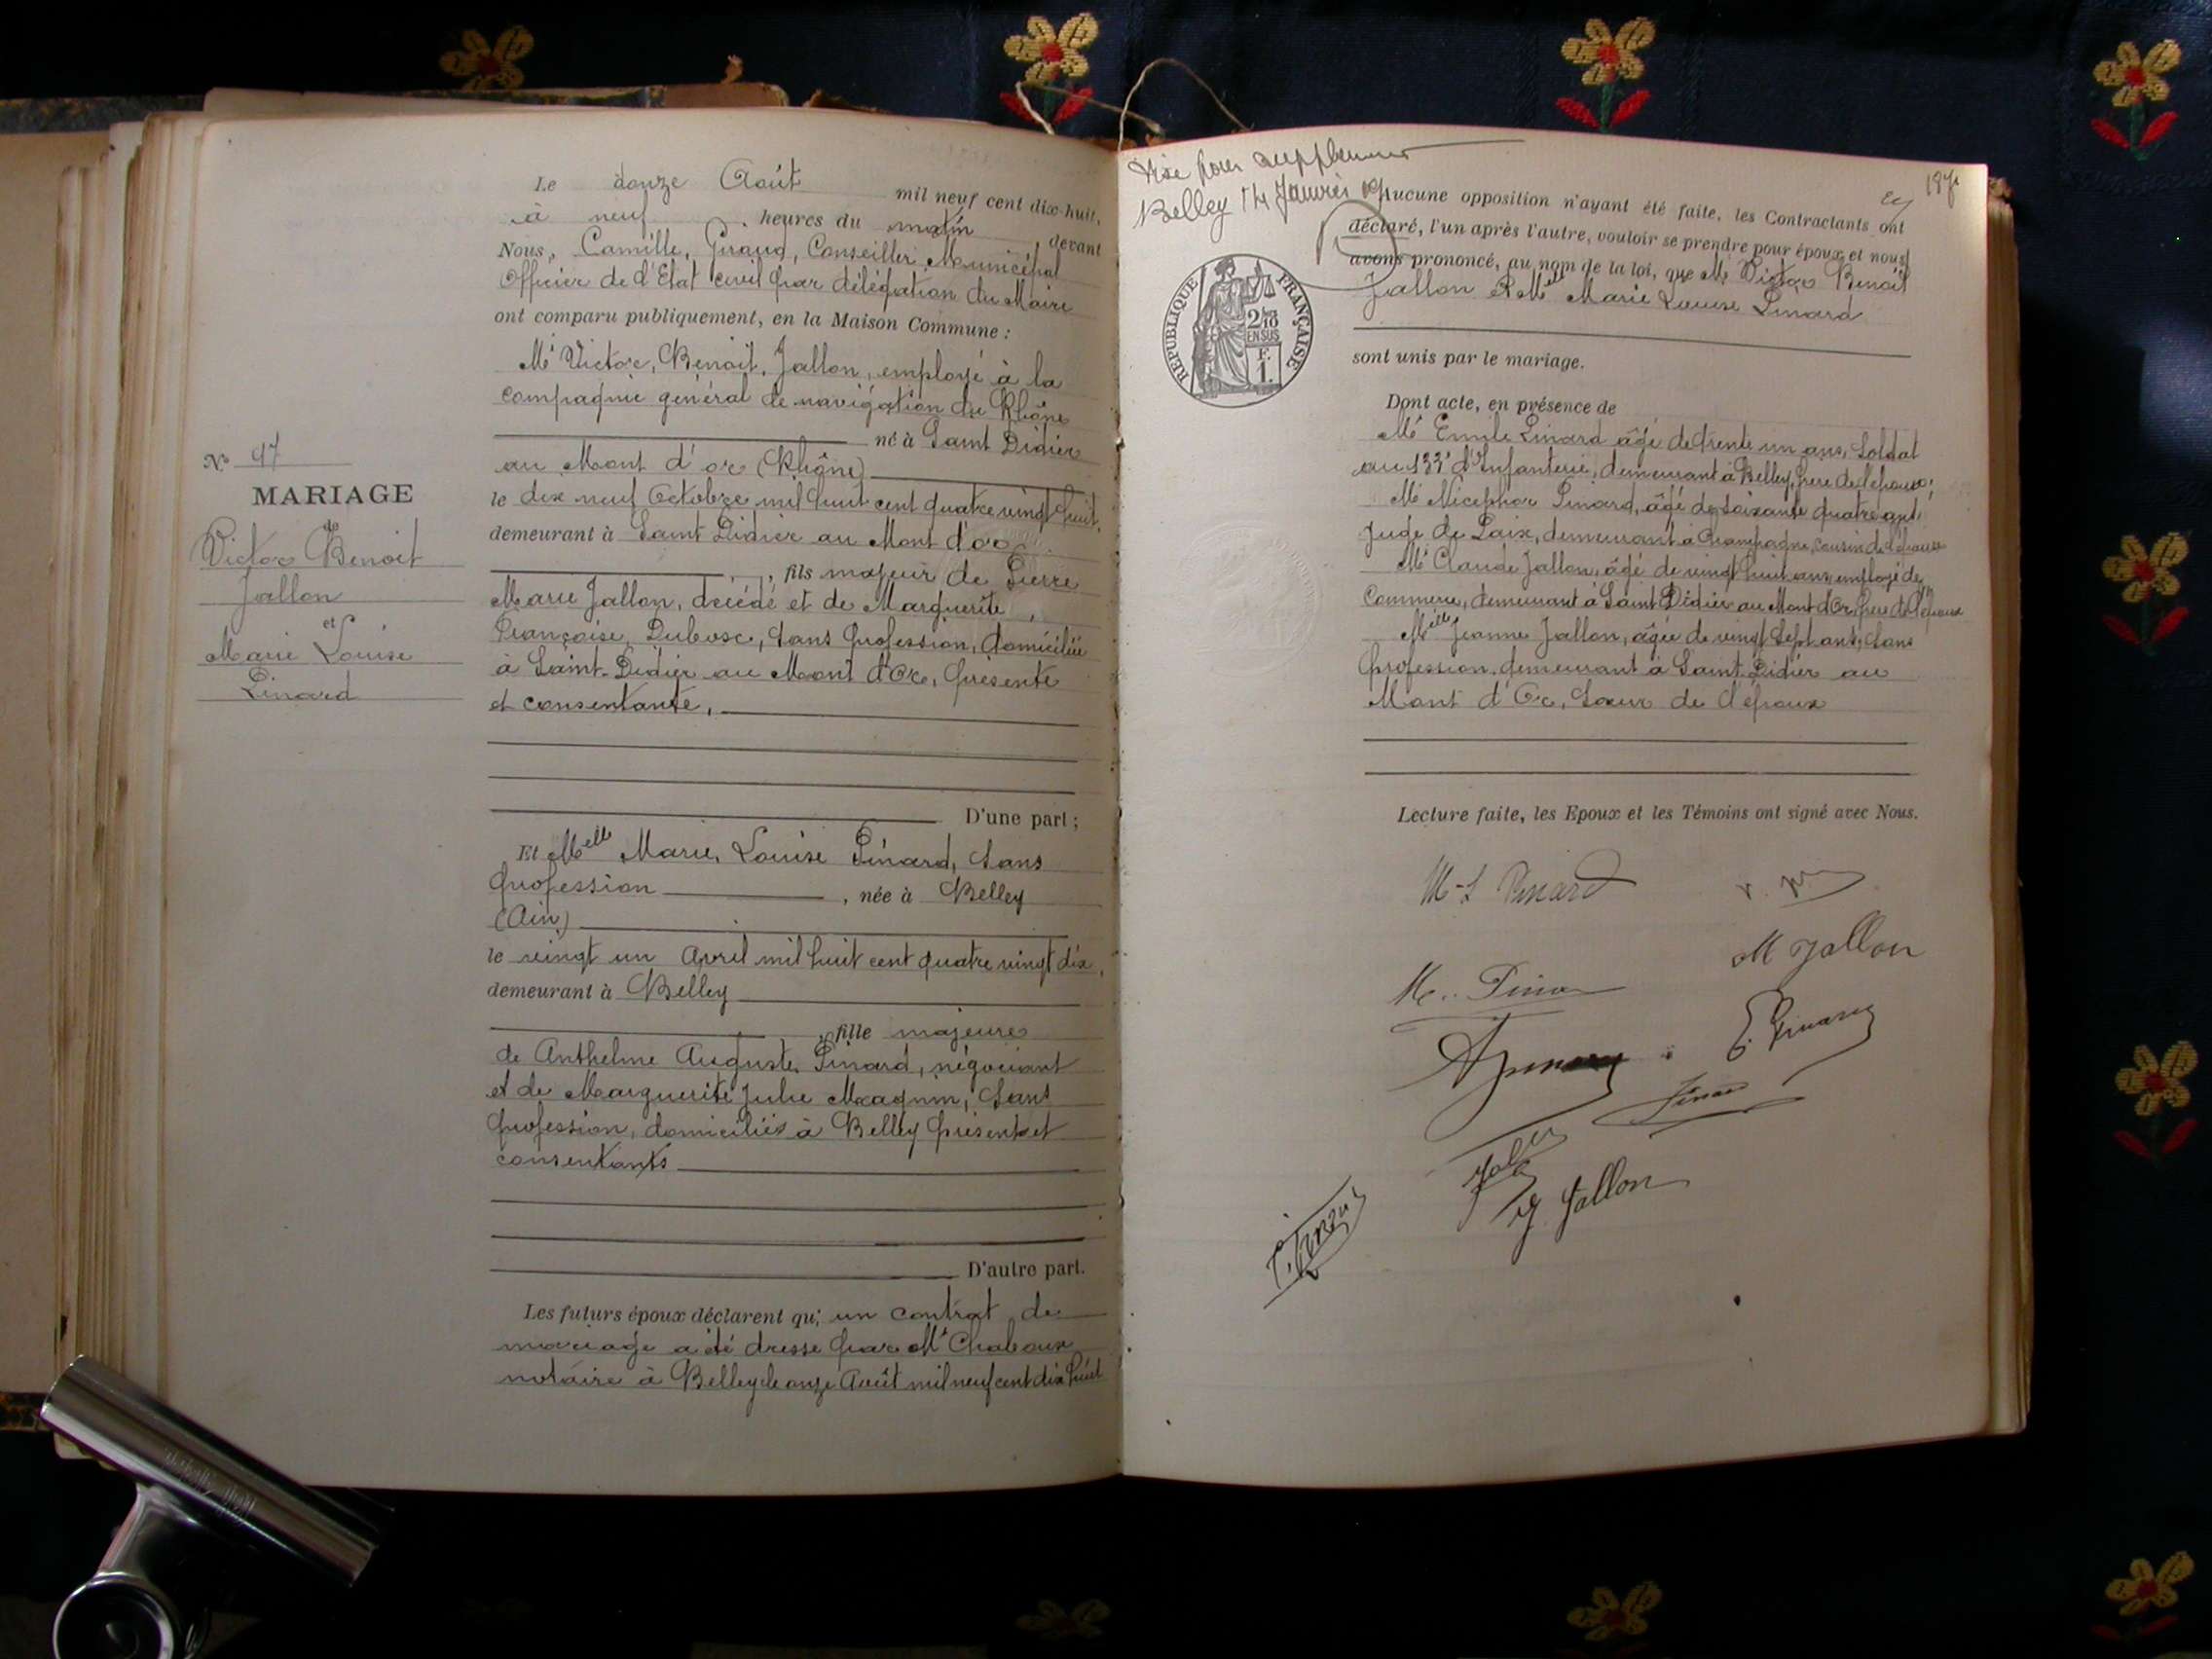 Le douze Août mil neuf cent dix-huit,
à neuf heures du matin, devant
Nous, Camille, Giraud, Conseiller Municipal
Officier de l'Etat civil par délégation du Maire
ont comparu publiquement, en la Maison Commune :
Mr Victor, Benoit, Jallon, employé à la
compagnie général de navigation du Rhône
né à Saint Didier
au Mont d'or (Rhône)
le dix neuf Octobre mil huit cent quatre vingt huit,
demeurant à Saint Didier au Mont d'or
, fils majeur de Pierre
Marie Jallon, décédé et de Marguerite
Françoise, Dubosc, sans profession, domiciliée
à Saint-Didier au Mont d'Or, présente
et consentante,
D'une part ;
Et Melle Marie, Louise Pinard, sans
profession, née à Belley
(Ain)
le vingt un Avril mil huit cent quatre vingt dix,
demeurant à Belley
, fille majeure
de Anthelme Auguste Pinard, négociant
et de Marguerite Julie Magnin, sans
profession, domiciliés à Belley présent et
consentants
D'autre part.
Les futurs époux déclarent qu'un contrat de
mariage a été dressé par Me
notaire à Belley le onze Août mil neuf cent dix huit
No 47
MARIAGE
de
Victor Benoit
Jallon
et
Marie Louise
Pinard
Visé pour supplément
Belley 14 Janvier
187
REPUBLIQUE FRANÇAISE
2/10
EN SUS
F.
1.
Aucune opposition n'ayant été faite, les Contractants ont
déclaré, l'un après l'autre, vouloir se prendre pour époux et nous
avons prononcé, au nom de la loi, que Mr Victor Benoit
Jallon et Melle Marie Louise Pinard
sont unis par le mariage.
Dont acte, en présence de
Mr Emile Pinard âgé de trente un ans, Soldat
au 133e d'Infanterie, demeurant à Belley, frère de l'épouse;
Mr Nicephor Pinard, âgé de soixante quatre ans,
Juge de Paix, demeurant à Champagne, cousin de l'épouse
Mr Claude Jallon, âgé de vingt huit ans, employé de
Commerce, demeurant à Saint Didier au Mont d'Or, frère de l'époux
Melle Jeanne Jallon, âgée de vingt sept ans, sans
profession, demeurant à Saint Didier au
Mont d'Or, Soeur de l'époux
Lecture faite, les Epoux et les Témoins ont signé avec Nous.
M-L Pinard
M Jallon
E. Pinard
Jallon
J. Jallon